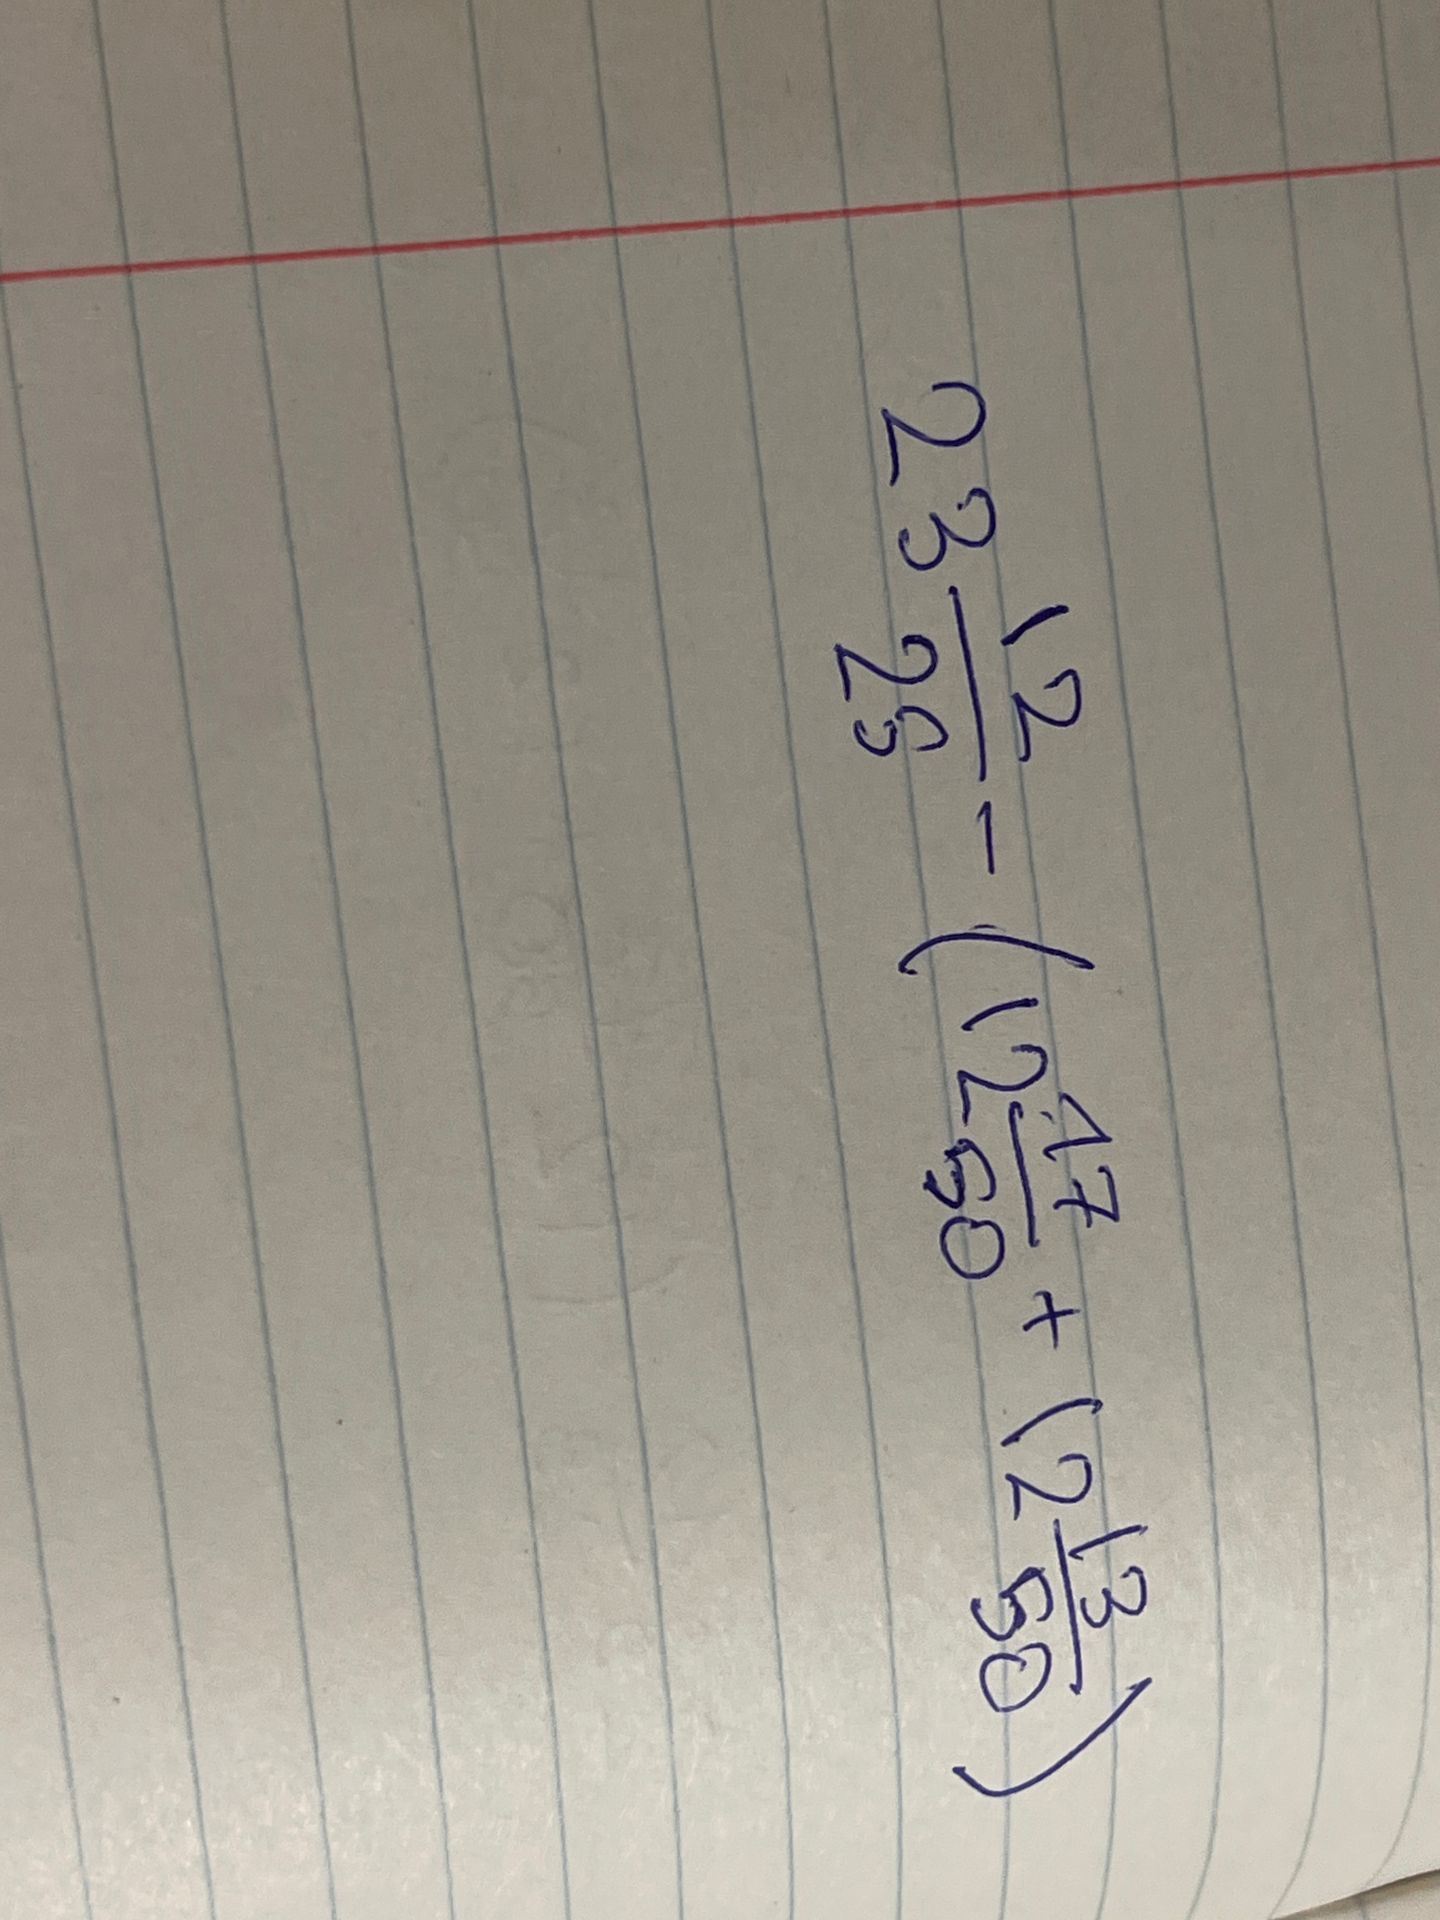 23 12/25 - (12 17/50 + 12 13/50)